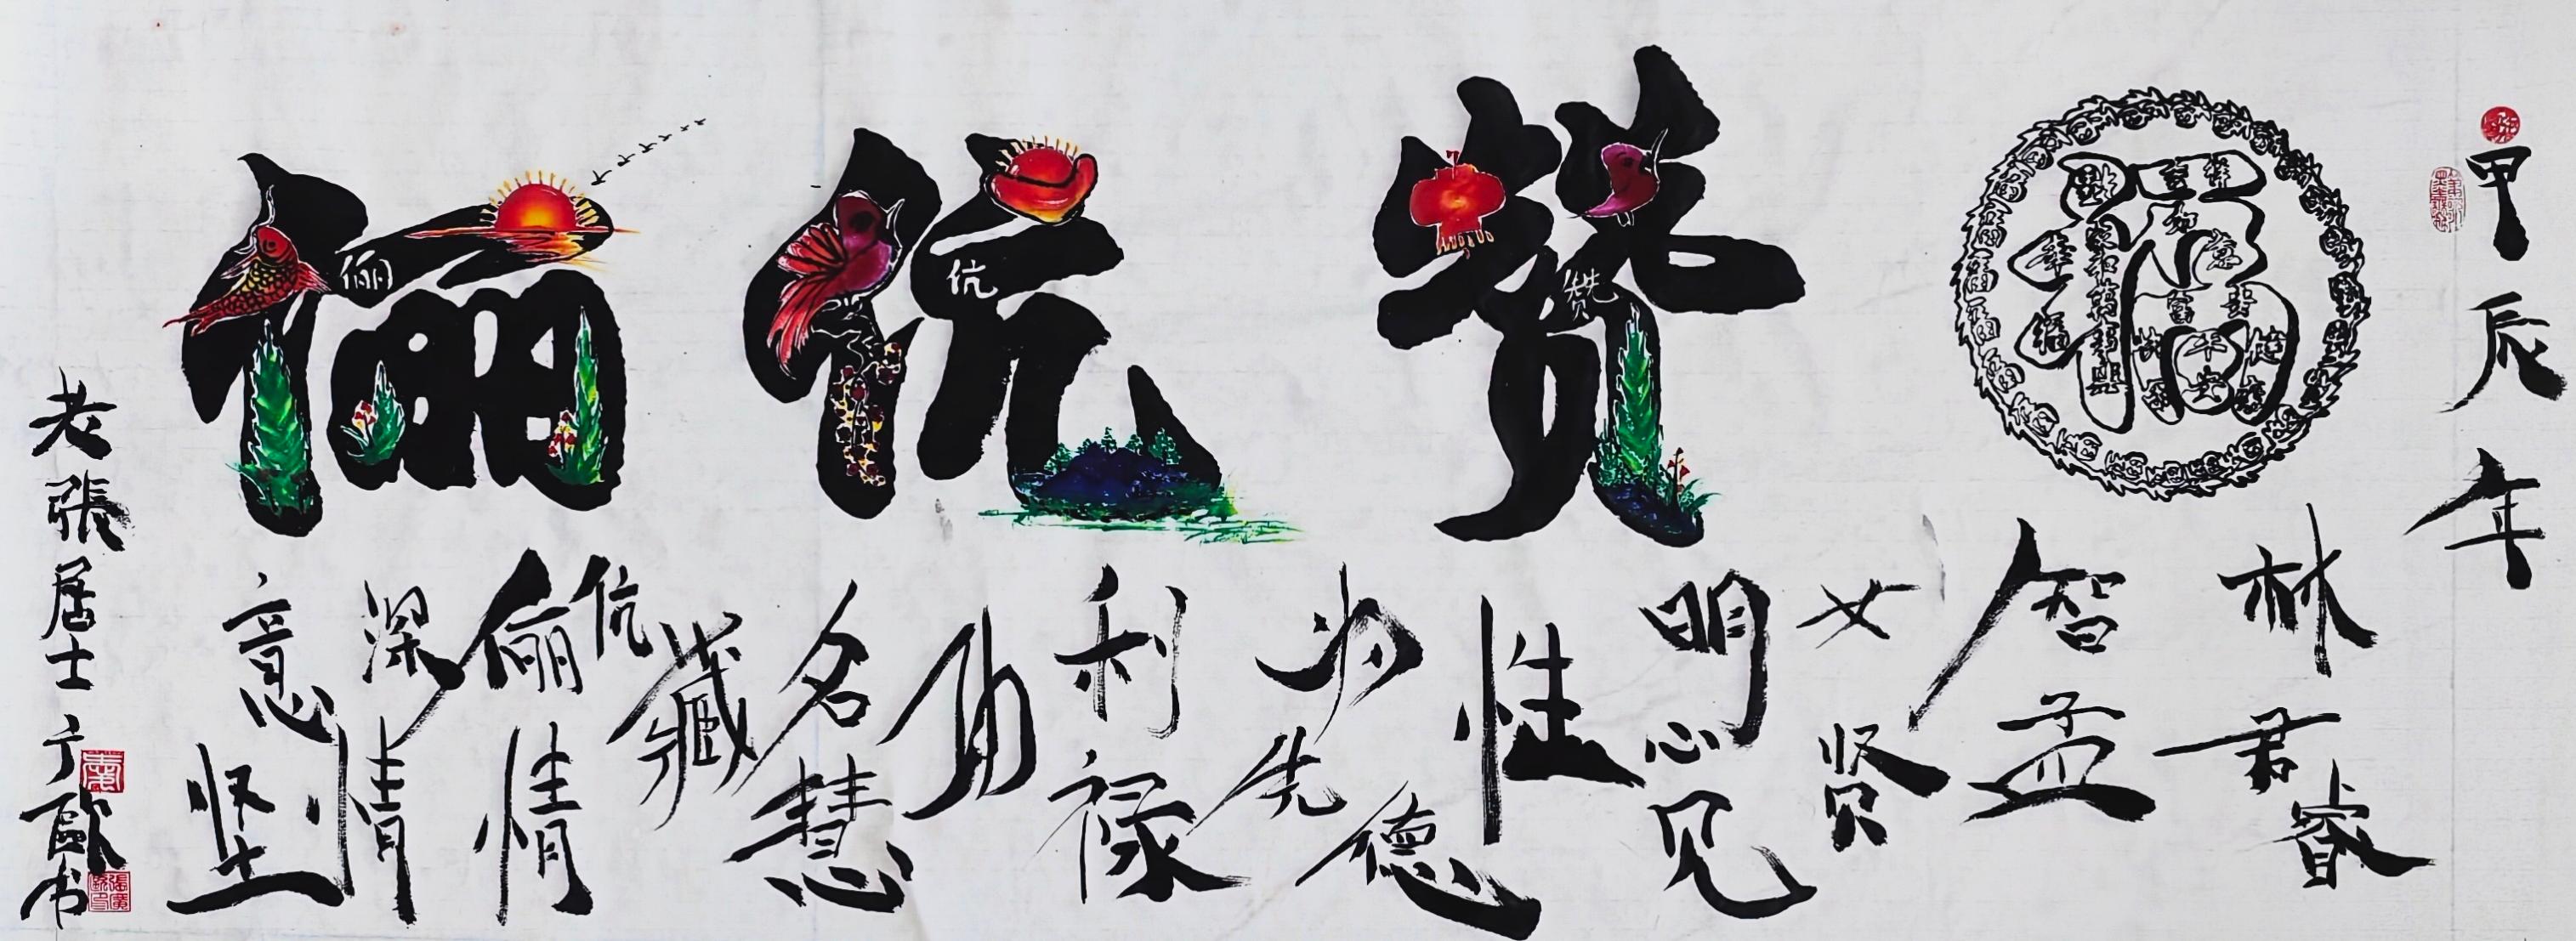 甲辰年
福
赞伉俪
赞
伉
俪
林君睿
智孟
女贤
明心见
性
为先德
利禄
功
名慧
藏
伉
俪情
深情
意坚
老張居士广歐书